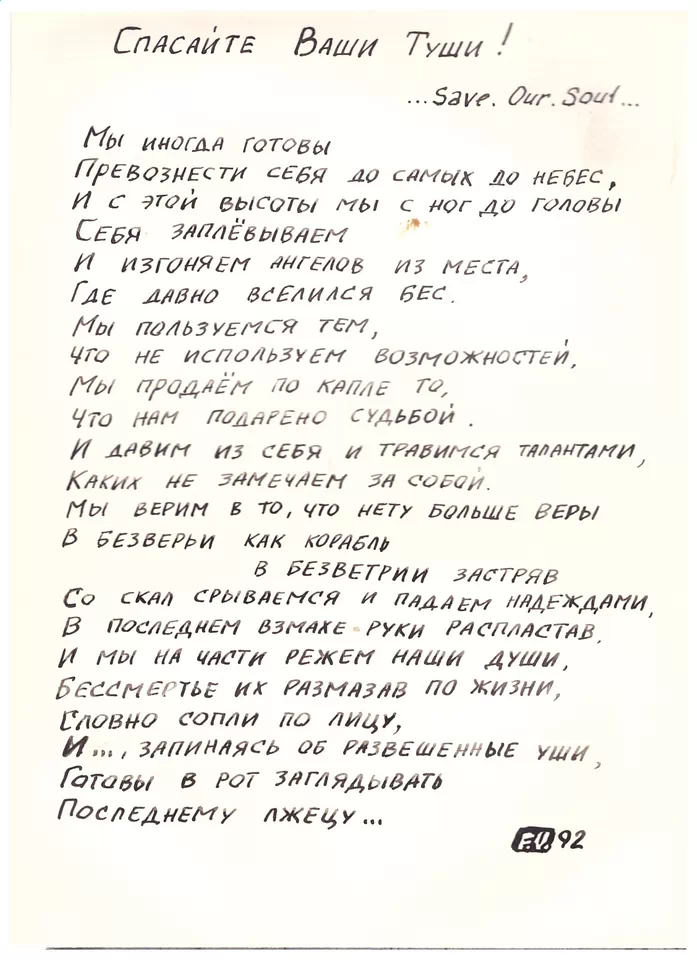 Спасайте Ваши Туши!
...Save. Our. Soul...
Мы иногда готовы
Превознести себя до самых до небес,
И с этой высоты мы с ног до головы
Себя заплёвываем
И изгоняем ангелов из места,
Где давно вселился бес.
Мы пользуемся тем,
Что не используем возможностей,
Мы продаём по капле то,
Что нам подарено судьбой.
И давим из себя и травимся талантами,
Каких не замечаем за собой.
Мы верим в то, что нету больше веры
В безверьи как корабль
В безветрии застряв
Со скал срываемся и падаем надеждами,
В последнем взмахе руки распластав.
И мы на части режем наши души,
Бессмертье их размазав по жизни,
Словно сопли по лицу,
И..., запинаясь об развешенные уши,
Готовы в рот заглядывать
Последнему лжецу...
F.V. 92